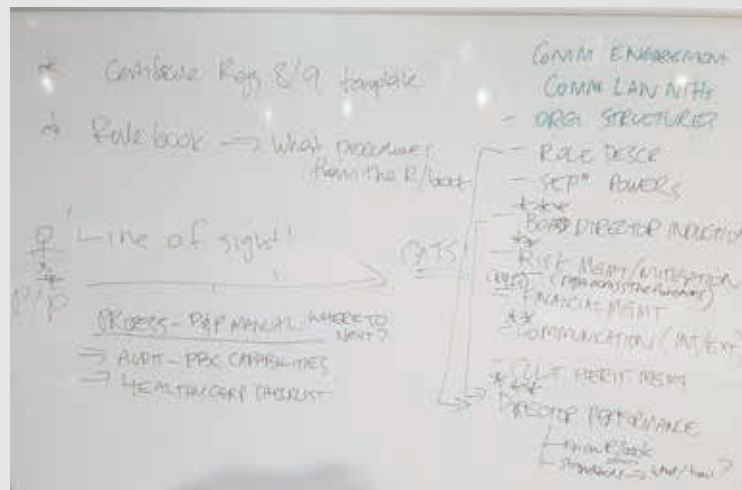 * Continue Regs 8/9 template
* Rule book → What
from the R/book
'Line of sight'
P/P
PROCESS - P&P MANUAL WHERE TO
NEXT?
→ AUDIT - PBC CAPABILITIES
→ HEALTHY CORP CHECKLIST
COMM ENGAGEMENT
COMM LAW NTHS
- ORG. STRUCTURE?
- ROLE DESCR
- SEPⁿ POWERS
***
- BOARD DIRECTOR INDUCTION
**
- RISK MGMT/MITIGATION
FINANCIAL MGMT
**
- COMMUNICATION (INT/EXT)
- CULT HERIT MGMT
***
DIRECTOR PERFORMANCE
know R/book
standards → what/how?